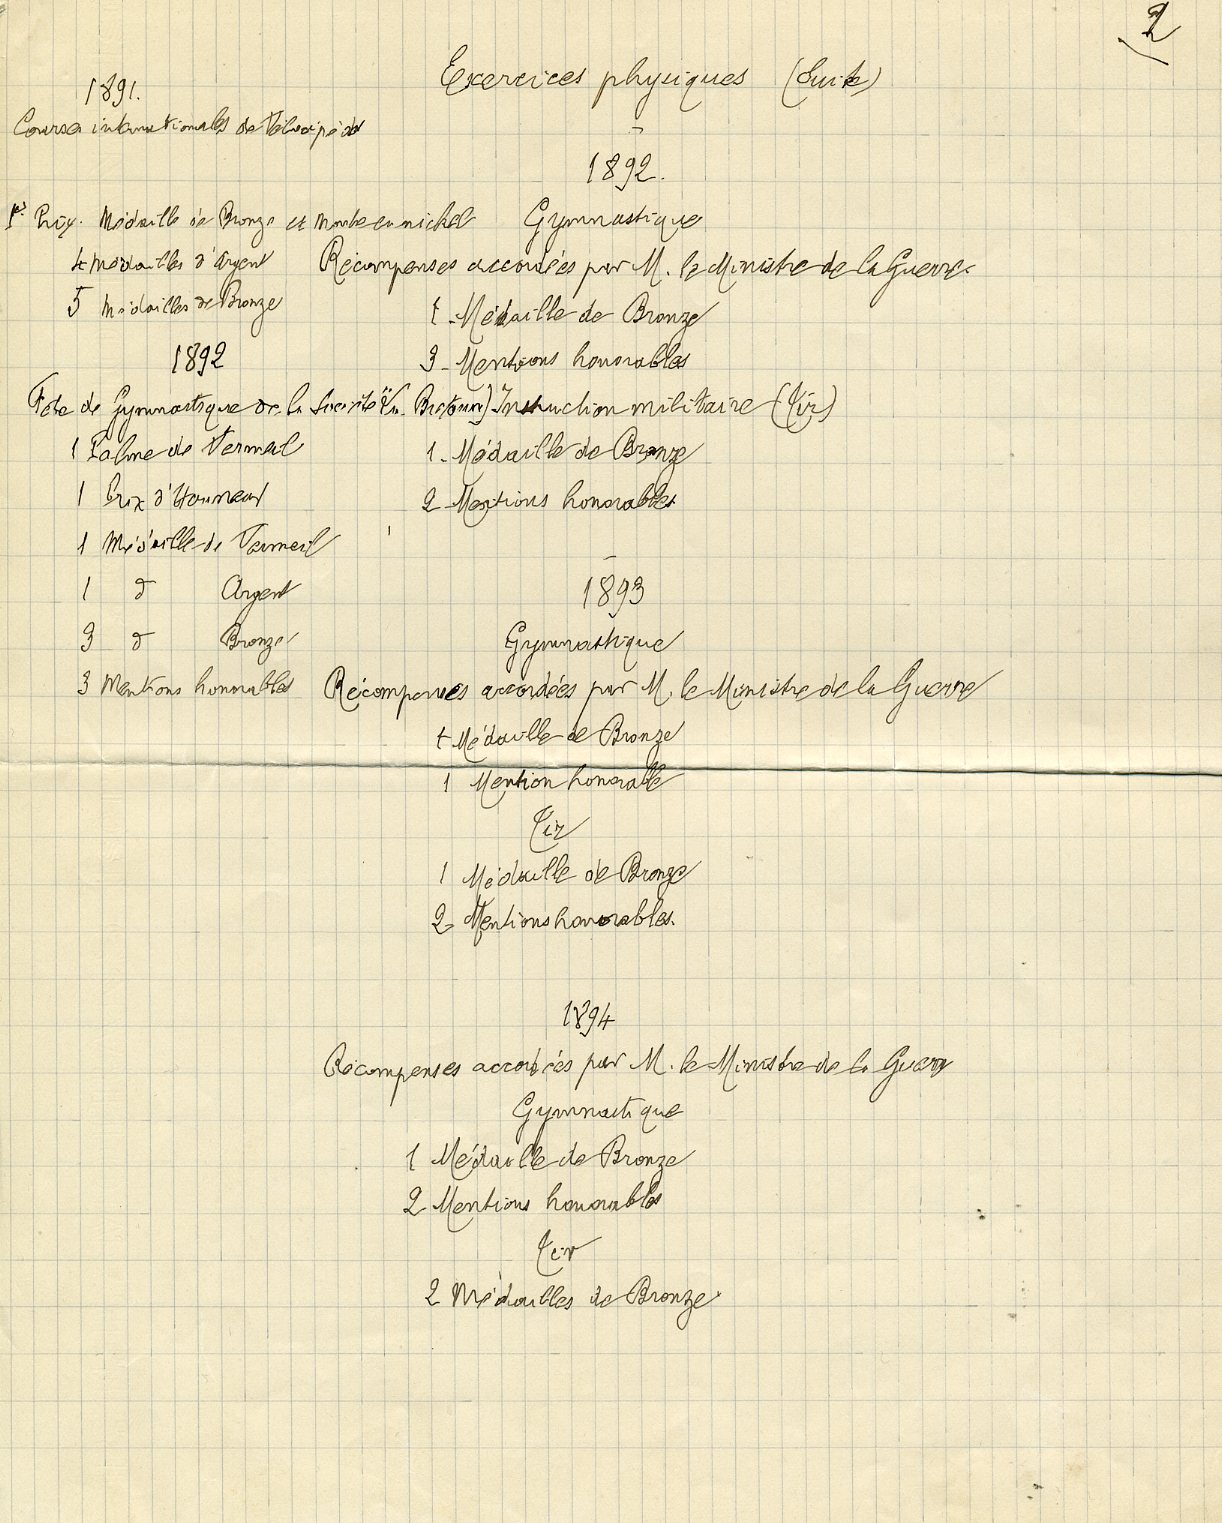 2
Exercices physiques (Suite)
1891.
Courses internationales de Vélocipèdes
1er Prix. Médaille de Bronze et montre en nickel
4 médailles d'Argent
5 médailles de Bronze
1892
Fête de Gymnastique de la Société "La Bretonne"
1 Palme de Vermeil
1 Prix d'Honneur
1 Médaille de Vermeil
1 d° Argent
3 d° Bronze
3 Mentions honorables
1892.
Gymnastique
Récompenses accordées par M. le Ministre de la Guerre.
1 - Médaille de Bronze
3 - Mentions honorables
Instruction militaire (Tir)
1 - Médaille de Bronze
2 - Mentions honorables
1893
Gymnastique
Récompenses accordées par M. le Ministre de la Guerre
1 Médaille de Bronze
1 Mention honorable
Tir
1 Médaille de Bronze
2 Mentions honorables.
1894
Récompenses accordées par M. le Ministre de la Guerre
Gymnastique
1 Médaille de Bronze
2 Mentions honorables
Tir
2 Médailles de Bronze.